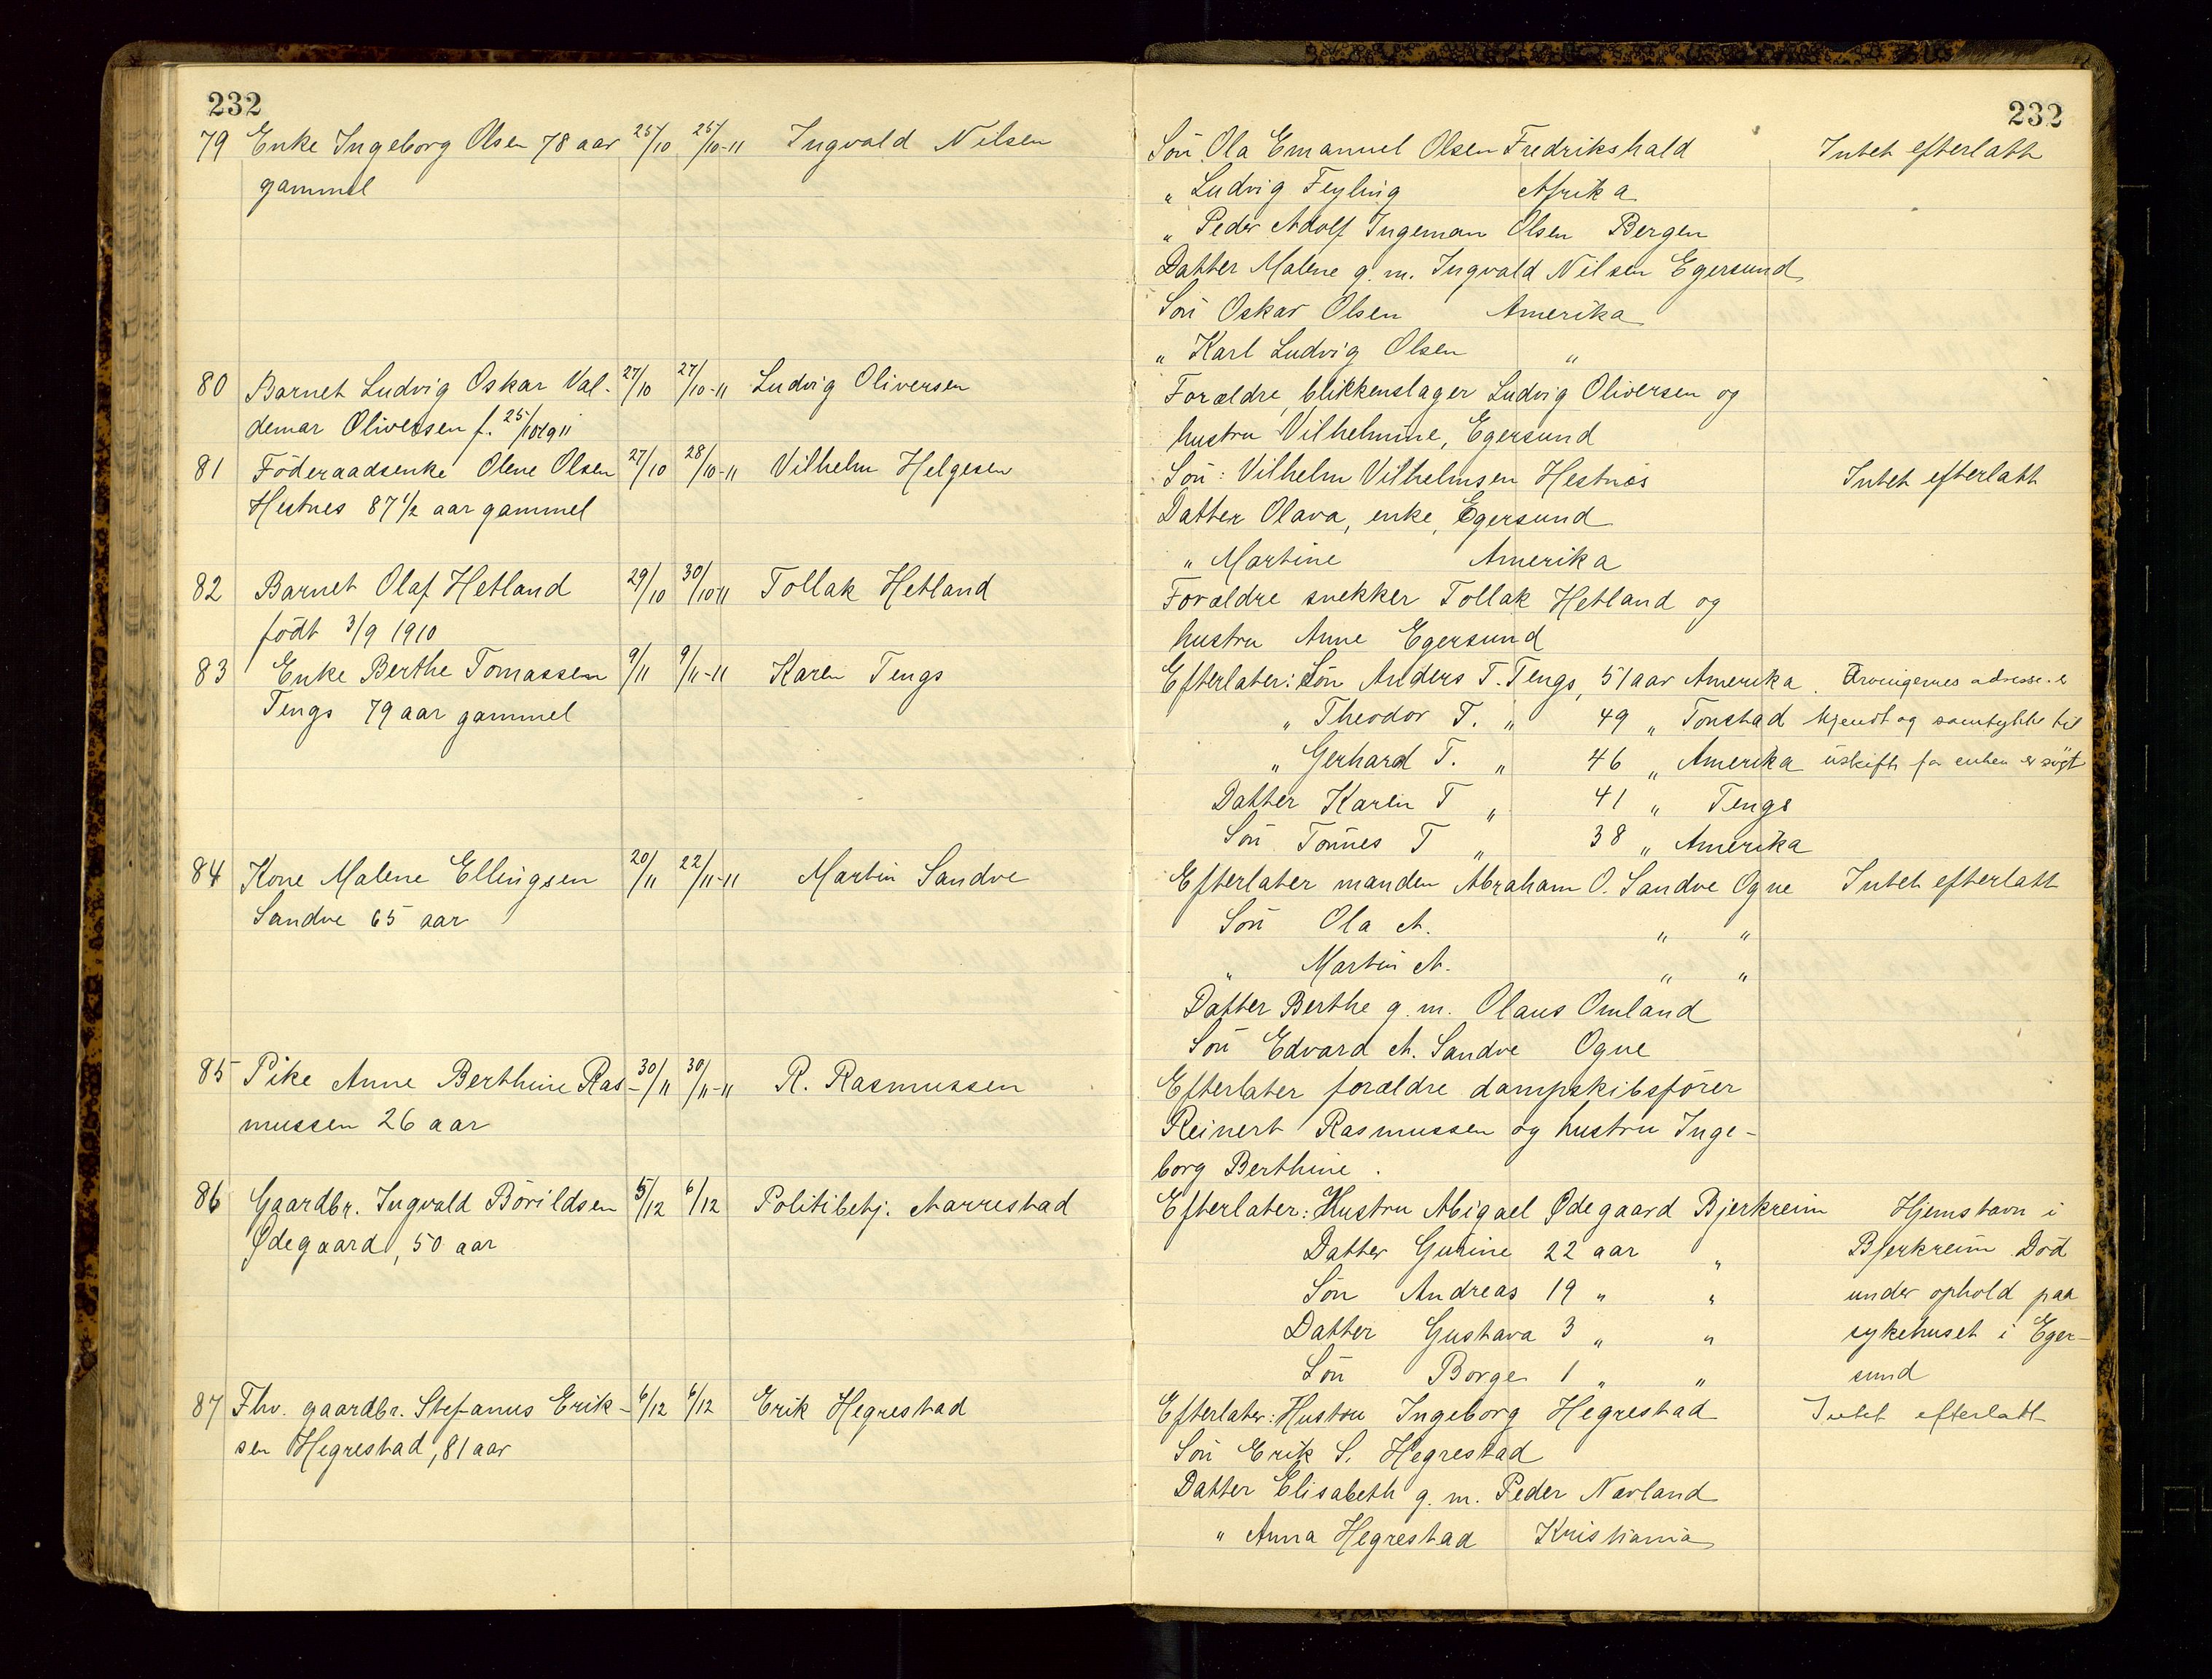 232
232
79 Enke Ingeborg Olsen 78 aar 25/10 25/10-11 Ingvald Nilsen
gammel
Sön Ola Emanuel Olsen Fredrikshald Intet efterlatt
„ Ludvig Feyling Afrika
„ Peder Adolf Ingeman Olsen Bergen
Datter Malene g. m. Ingvald Nilsen Egersund
Sön Oskar Olsen Amerika
„ Karl Ludvig Olsen „
80 Barnet Ludvig Oskar Val- 27/10 27/10-11 Ludvig Oliversen
demar Oliversen f. 25/10 1911
Forældre, blikkenslager Ludvig Oliversen og
hustru Vilhelmine, Egersund
81 Föderaadsenke Olene Olsen 27/10 28/10-11 Vilhelm Helgesen
Hestnes 87 1/2 aar gammel
Sön: Vilhelm Vilhelmsen Hestnæs Intet efterlatt
Datter Olava, enke, Egersund
„ Martine Amerika
82 Barnet Olaf Hetland 29/10 30/10 11 Tollak Hetland
födt 3/9 1910
Forældre snekker Tollak Hetland og
hustru Anne Egersund
83 Enke Berthe Tomassen 9/11 9/11-11 Karen Tengs
Tengs 79 aar gammel
Efterlater: Sön Anders T. Tengs, 51 aar Amerika. Arvingernes adresse. er
„ Theodor T. „ 49 „ Tonstad kjendt og samtykke til
„ Gerhard T. „ 46 „ Amerika uskifte for enken er sögt
Datter Karen T „ 41 „ Tengs
Sön Tönnes T „ 38 „ Amerika
84 Kone Malene Ellingsen 20/11 22/11-11 Martin Sandve
Sandve 65 aar
Efterlater manden Abraham O. Sandve Ogne Intet efterlatt
Sön Ola A. „ „
„ Martin A. „ „
Datter Berthe g. m. Olaus Omland
Sön Edvard A. Sandve Ogne
85 Pike Anne Berthine Ras- 30/11 30/11-11 R. Rasmussen
mussen 26 aar
Efterlater forældre dampskibsförer
Reinert Rasmussen og hustru Inge-
borg Berthine.
86 Gaardbr. Ingvald Börildsen 5/12 6/12 Politibetj. Aarrestad
Ødegaard, 50 aar
Efterlater: Hustru Abigael Ødegaard Bjerkreim Hjemstavn i
Datter Gurine 22 aar „ Bjerkreim. Död
Sön Andreas 19 „ „ under ophold paa
Datter Gustava 3 „ „ sykehuset i Eger-
Sön Borge 1 „ „ sund
87 Fhv. gaardbr. Stefanus Erik- 6/12 6/12 Erik Hegrestad
sen Hegrestad, 81 aar
Efterlater: Hustru Ingeborg Hegrestad Intet efterlatt
Sön Erik S. Hegrestad
Datter Elisabeth g. m. Peder Navland
„ Anna Hegrestad Kristiania